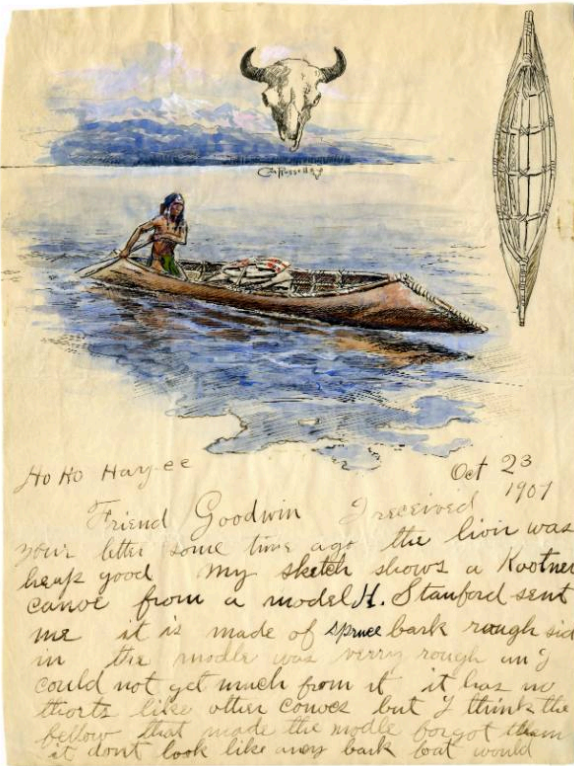 CM Russell
Ho Ho Hay-ee
Oct 23
1907
Friend Goodwin I received
your letter some time ago the lion was
heap good my sketch shows a Kootner
canoe from a model H. Stanford sent
me it is made of spruce bark rough sid
in the modle was verry rough an I
could not get much from it it has no
thorts like other canoes but I think the
fellow that made the modle forgot them
it dont look like aney bark boat would